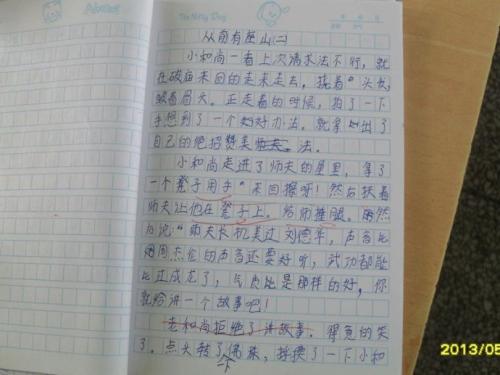 The Noby Dog
从前有座山(二)
小和尚一看上次请求法不行，就
在破庙来回的走来走去，挠着"头发，
皱着眉头。正走着的时候，拍了一下
手想到了一个好办法。就拿出了
自己的绝招赞美法。
小和尚走进了师夫的屋里，拿了
一个凳子用手"来回擦呀！然后扶着
师夫让他在凳子上。给师捶腿。
为说"师夫长机美过刘德华，声音比
周杰伦的声音还要好听，武功都能
比过成龙了，气质比是那样的好，你
就给讲一个故事吧！
老和尚拒绝了讲故事。得意的笑
了。点头转了佛珠，了一下小和
2013/05